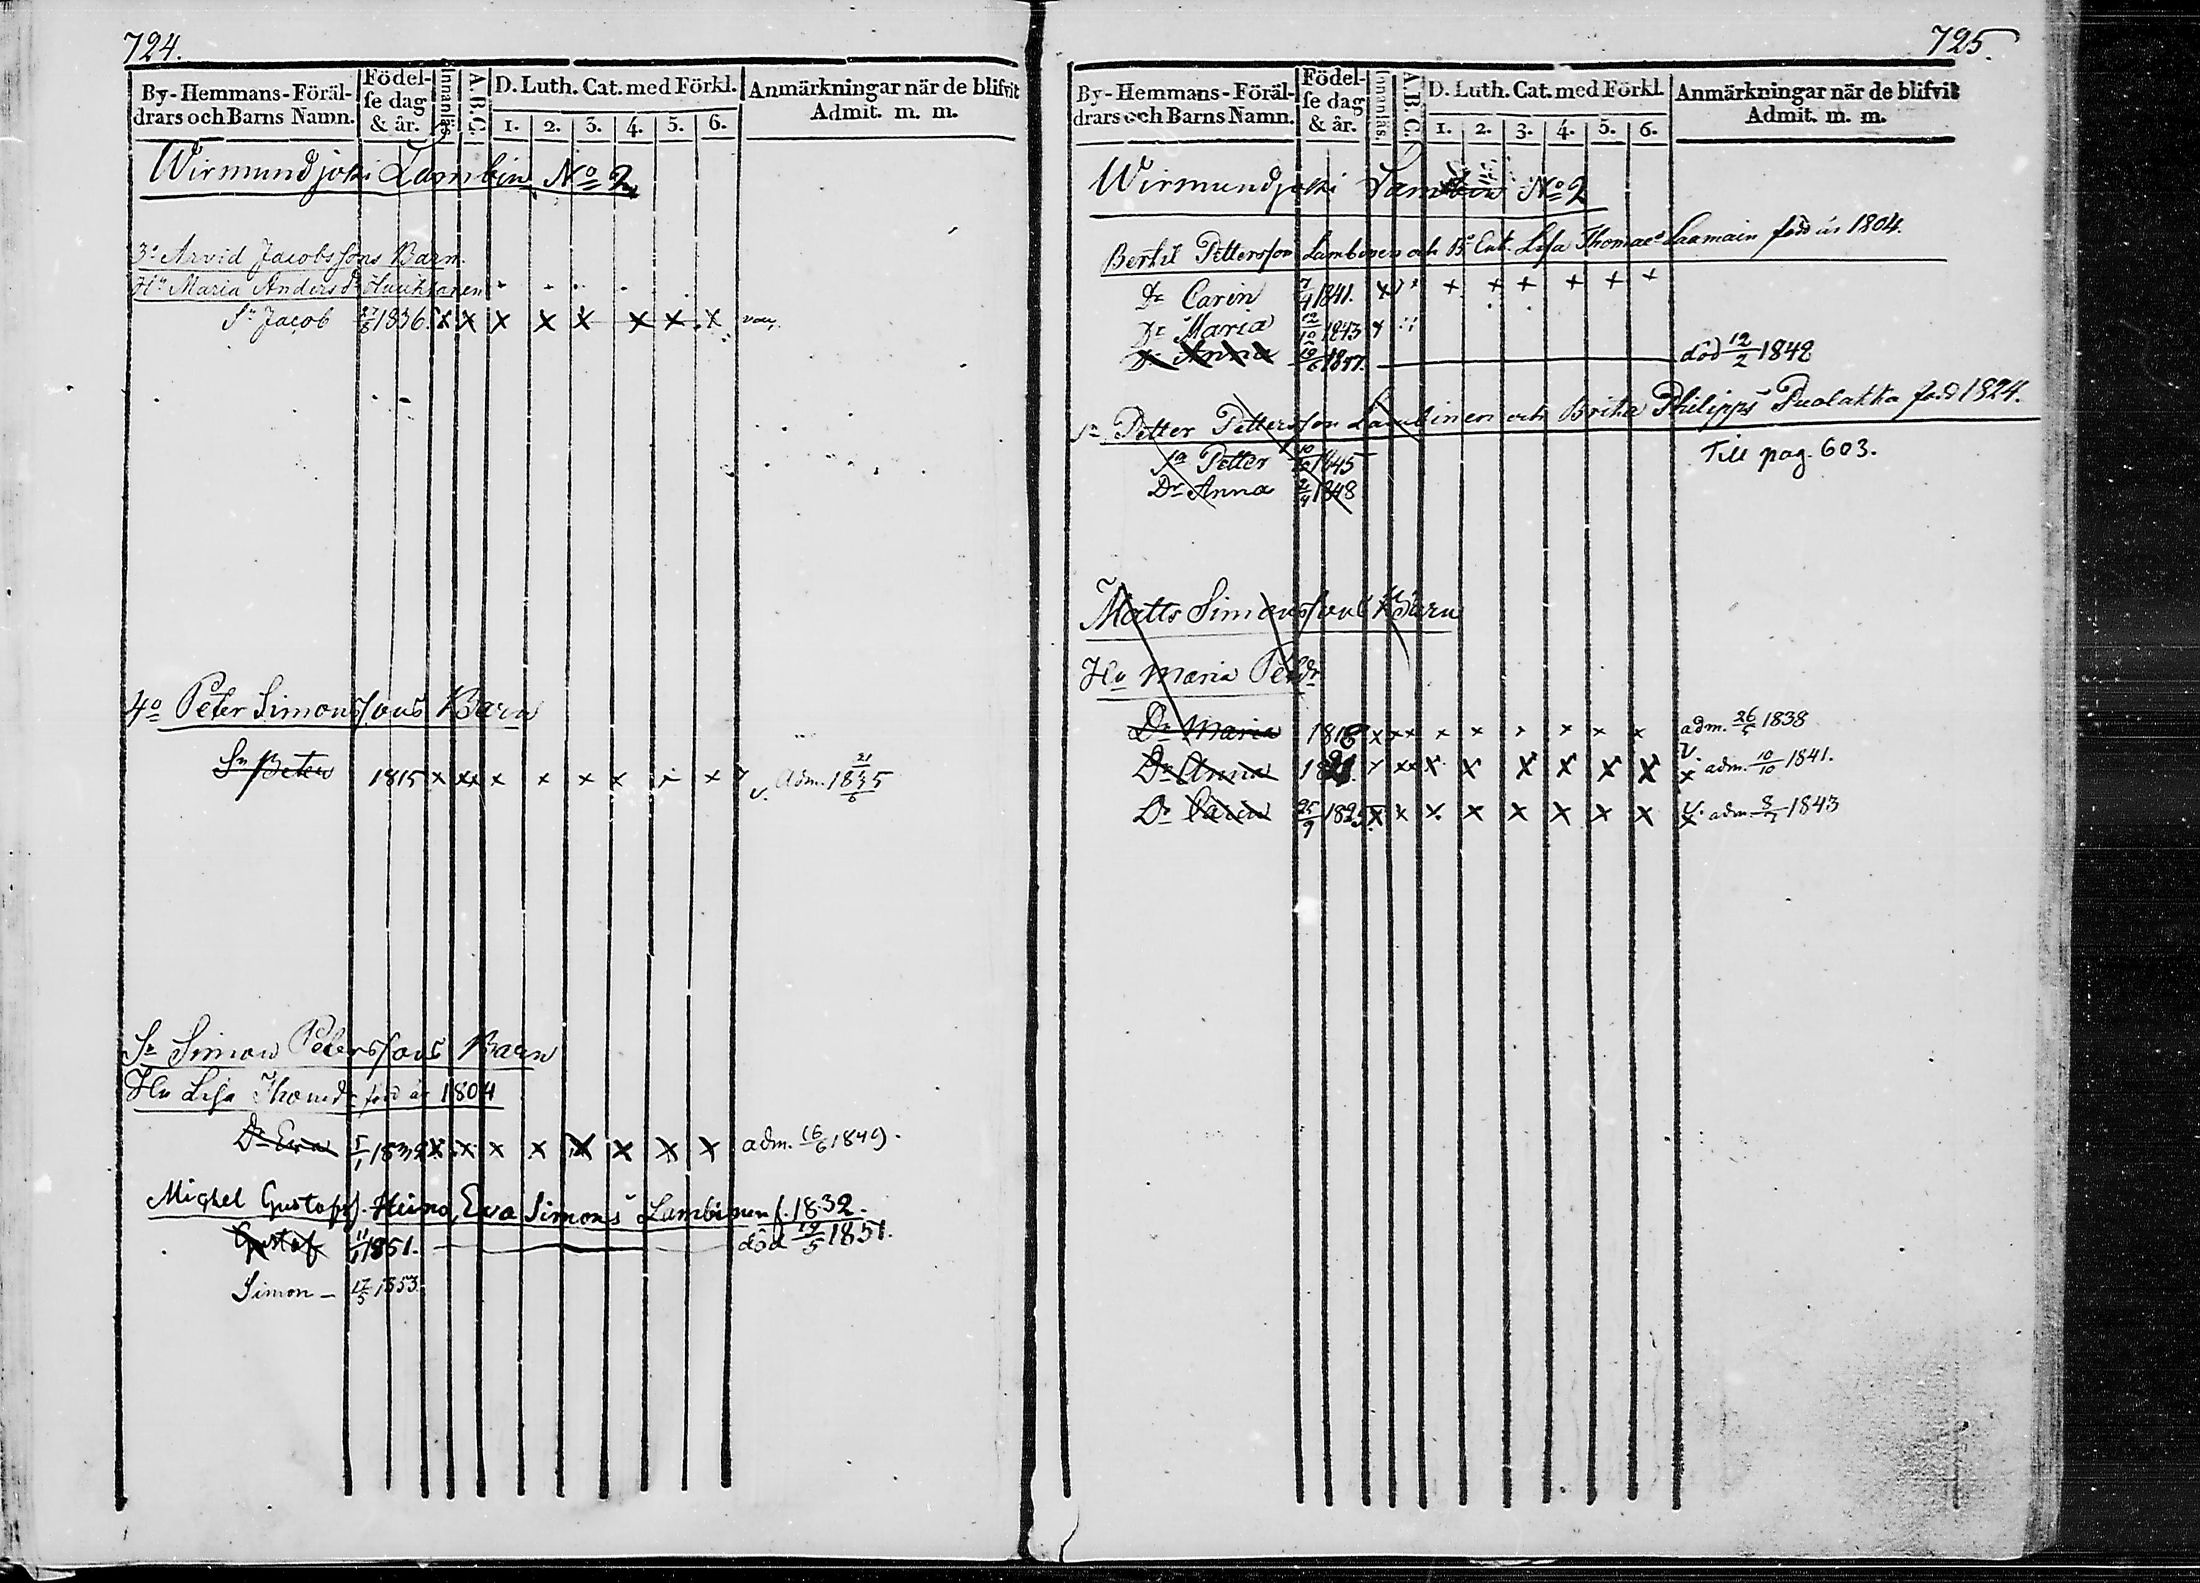 724.
By-Hemmans-Föräldrars och Barns Namn. Födelse dag & år. Innanläs. A.B.C. D. Luth. Cat. med Förkl. 1. 2. 3. 4. 5. 6. Anmärkningar när de blifvit Admit. m. m.
Wirmundjoki Lambin No 2
3o Arvid Jacobssons Barn.
Hu Maria Anders dr
Sn Jacob 27/8 1836. x x x x x x x x
4o Peter Simonssons Barn
Sn Peter 1815 x xx x x x x x x v. Adm. 1835 21/6
Sn Simon Peterssons Barn
Hu Lisa Thomdr född år 1804
Dr Eva 1/1 1832 x x x x x x x x adm. 16/6 1849.
Michel Gustafss. Heino, Eva Simons Lambinen f. 1832.
Gustaf 1851. död 19/5 1851.
Simon – 17/5 1853.
725.
By-Hemmans-Föräldrars och Barns Namn. Födelse dag & år. Innanläs. A.B.C. D. Luth. Cat. med Förkl. 1. 2. 3. 4. 5. 6. Anmärkningar när de blifvit Admit. m. m.
Wirmundjoki Lambin No 2
Bertil Pettersson Lambinen och Lisa Thomae Laamain född år 1804.
Dr Carin 7/4 1841. x x x x x x x
Dr Maria 12/10 1843 x
Dr Anna 10/6 1847. död 12/2 1848
Sn Petter Pettersson Lambinen och Brita Philipps Puolakka född 1824.
Sn Petter 1845 Till pag. 603.
Dr Anna 2/4 1848
Matts Simonssons Barn
Hu Maria Petdr
Dr Maria 1818 x xx x x x x x x adm. 26/5 1838
Dr Anna 1821. x xx x x x x x x v. x adm. 10/10 1841.
Dr Carin 25/9 1825. x x x x x x x x v. x adm. 8/7 1843